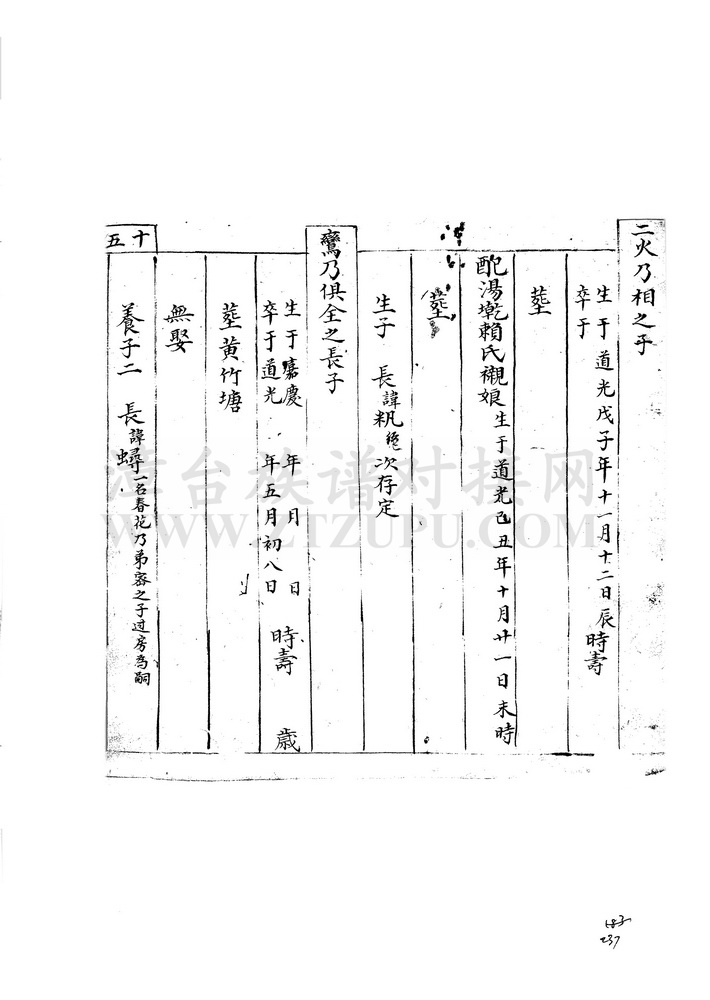 二火乃相之子
生于道光戊子年十一月十二日辰時壽
卒于
塟
配湯乾賴氏襯娘生于道光己丑年十月廿一日未時
塟
生子 長諱籸 次存定
鸞乃俱全之長子
生于嘉慶 年 月 日 時壽 歲
卒于道光 年五月初八日
塟黃竹塘
無娶
養子二 長諱蟳一名春花乃弟容之子过房為嗣
十五
漳台族谱对接网
WWW.ZTZUPU.COM
183
237